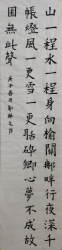 山一程水一程身向榆關那畔行夜深千
帳燈風一更雪一更聒碎鄉心夢不成故
園無此聲